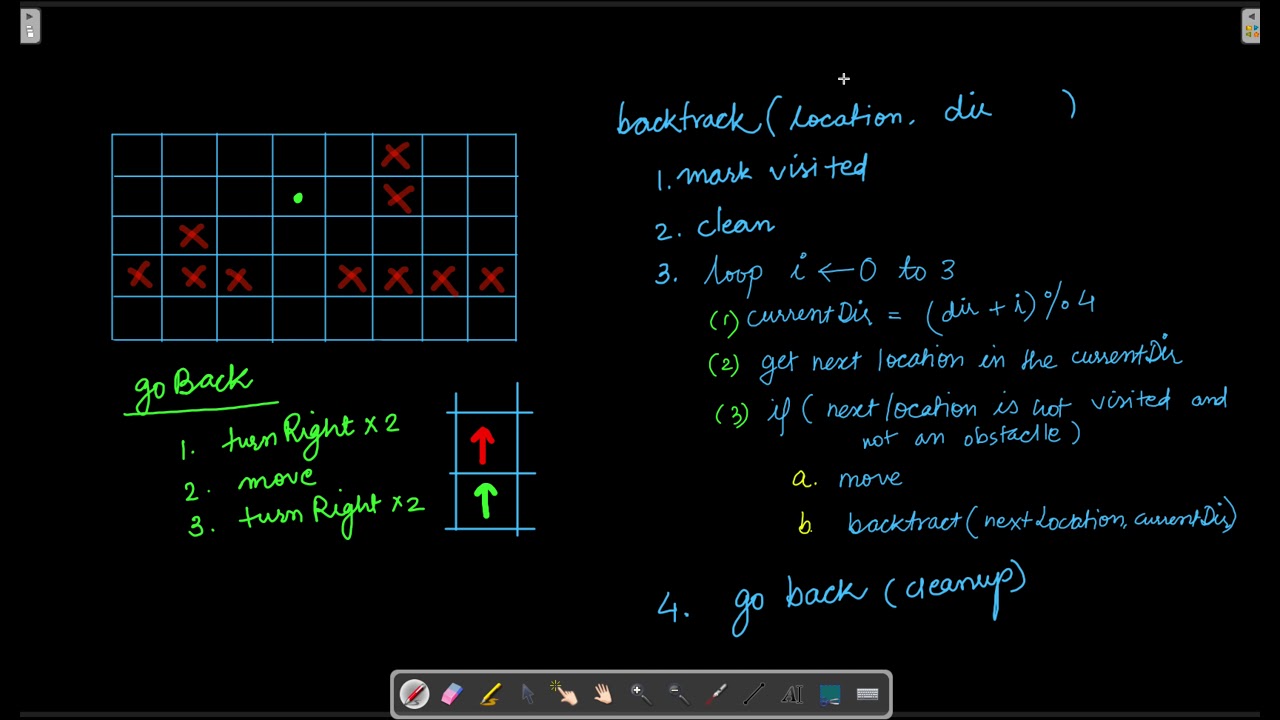 backtrack(location, dir )
1. mark visited
2. clean
3. loop i ← 0 to 3
(1) currentDir = (dir + i) % 4
(2) get next location in the currentDir
(3) if ( next location is not visited and
not an obstactle)
a. move
b. backtract(nextLocation, currentDir)
4. go back (cleanup)
go Back
1. turnRight x 2
2. move
3. turnRight x 2
AI